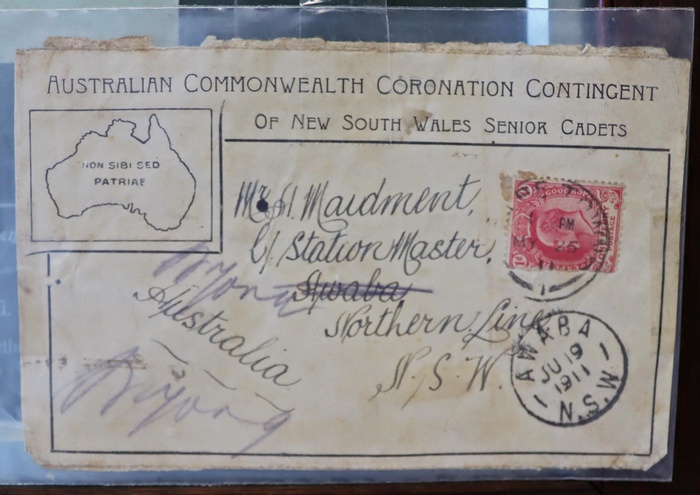 AUSTRALIAN COMMONWEALTH CORONATION CONTINGENT
OF NEW SOUTH WALES SENIOR CADETS
NON SIBI SED
PATRIAE
Mr. H. Maidment,
C/ Station Master,
Awaba
Northern Line
N.S.W.
Australia
Wyong
Wyong
GOOD HOPE
PM
25
AWABA
JU 19
1911
N.S.W.